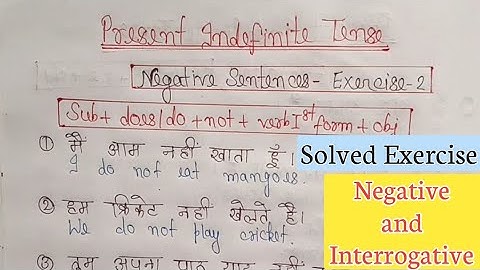 Present Indefinite Tense
Negative Sentences- Exercise-2
Sub + does/do + not + verb Ist form + obj
① मैं आम नहीं खाता हूँ।
I do not eat mangoes.
② हम क्रिकेट नहीं खेलते हैं।
We do not play cricket.
③ तुम अपना पाठ याद नहीं
Solved Exercise
Negative
and
Interrogative